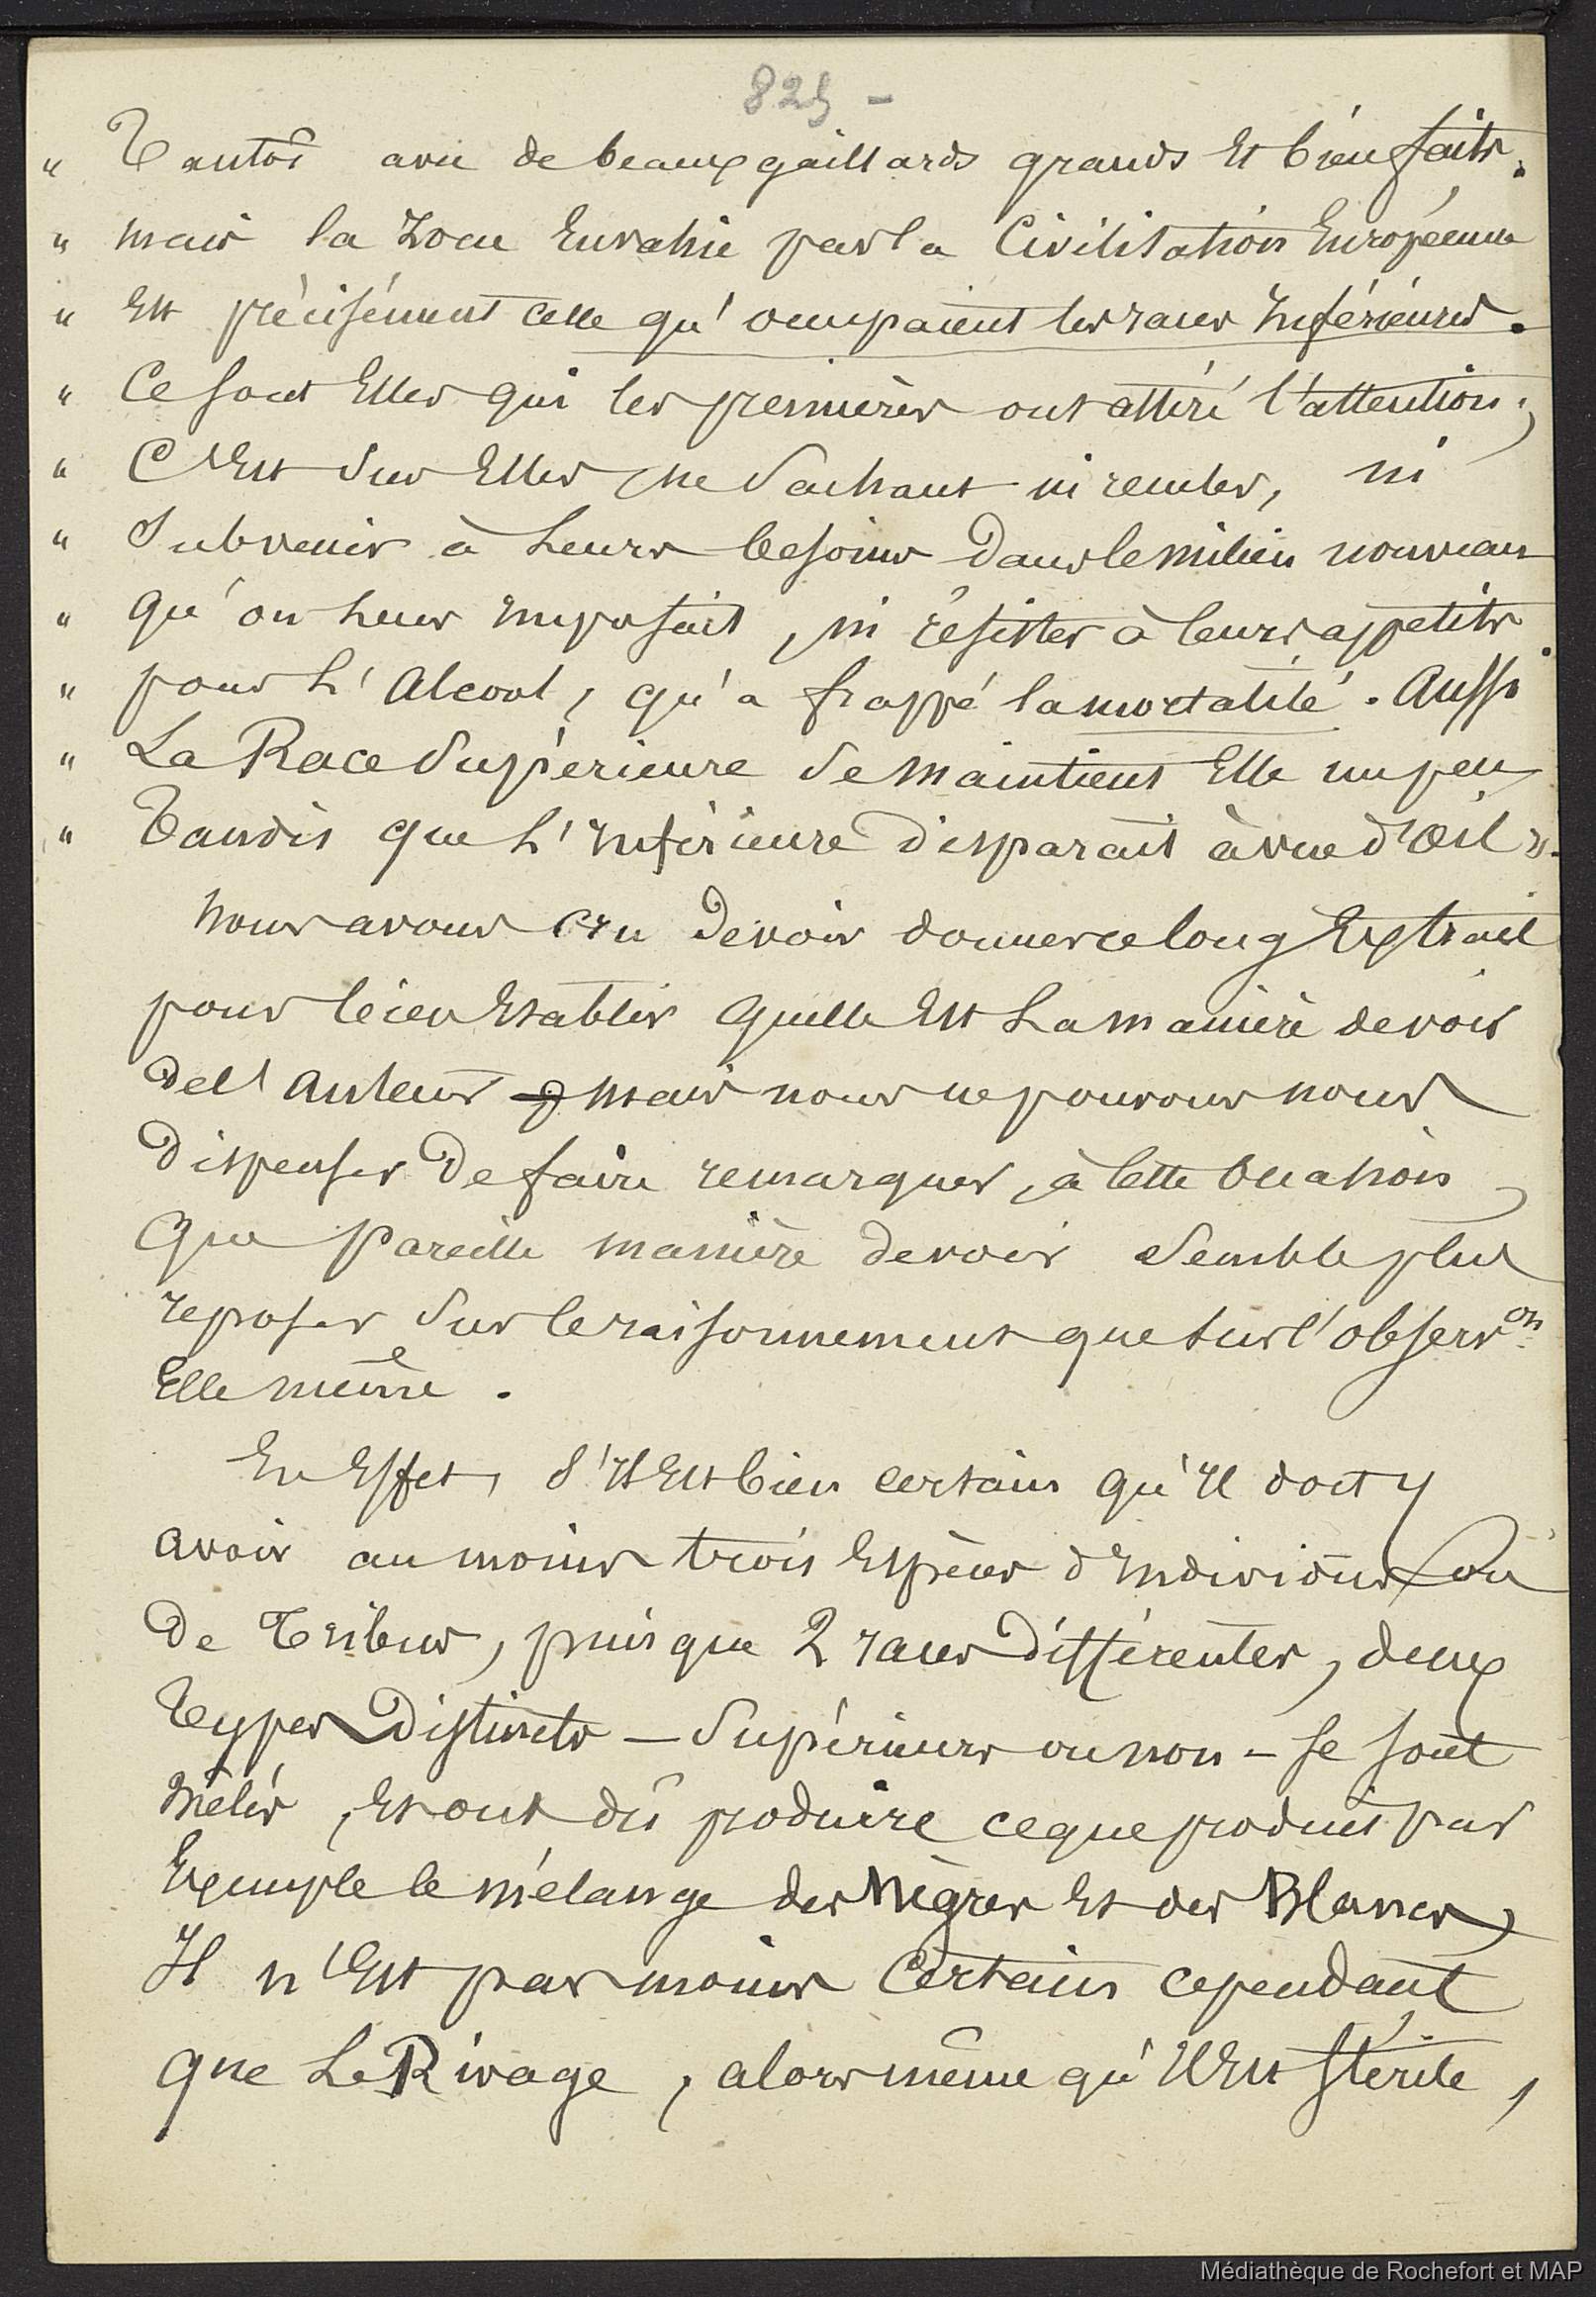 825 -
" Tantôt avu de beaux gaillards grands Et bien faits.
" mais la Zone Envahie par la Civilisation Européenne
" Est précisément celle qu'occupaient les races Inférieures.
" Ce sont Elles qui les premières ont attiré l'attention;
" C'Est sur Elles, ne sachant ni reculer, ni
" Subvenir à Leurs besoins dans le milieu nouveau
" qu'on Leur Imposait, ni résister à leurs appetits
" pour L'Alcool, qu'a frappé la mortalité. Aussi
" La Race Supérieure se Maintient Elle un peu
" Tandis que L'Inférieure Disparait à vue d'Œil ».
Nous avons cru Devoir donner ce long Extrait
pour bien Etablir Quelle Est La manière de voir
de l'Auteur mais nous ne pouvons nous
Dispenser De faire remarquer, à Cette Occasion,
Que Pareille manière de voir semble plus
reposer Sur le raisonnement que sur l'observon
Elle même.
En Effet, s'Il Est bien certain qu'Il doit y
avoir au moins trois Espèces d'Individus ou
De Tribus, puisque 2 races Différentes, deux
Types Distincts — Supérieurs ou non — se sont
Mêlés, Et ont dû produire ce que produit par
Exemple le mélange des Nègres Et des Blancs,
Il n'Est pas moins Certain cependant
que Le Rivage, alors même qu'Il Est stérile,
Médiathèque de Rochefort et MAP